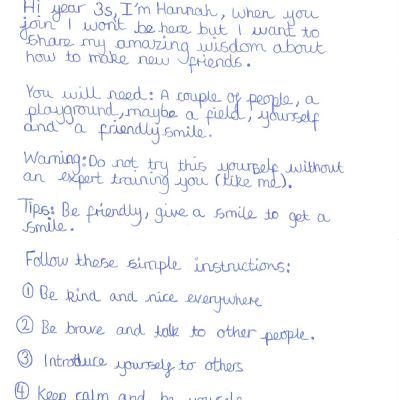 Hi year 3s, I'm Hannah, when you
join I won't be here but I want to
share my amazing wisdom about
how to make new friends.
You will need: A couple of people, a
playground, maybe a field, yourself
and a friendly smile.
Warning: Do not try this yourself without
an expert training you (like me).
Tips: Be friendly, give a smile to get a
smile.
Follow these simple instructions:
① Be kind and nice everywhere
② Be brave and talk to other people.
③ Introduce yourself to others
④ Keep calm and be